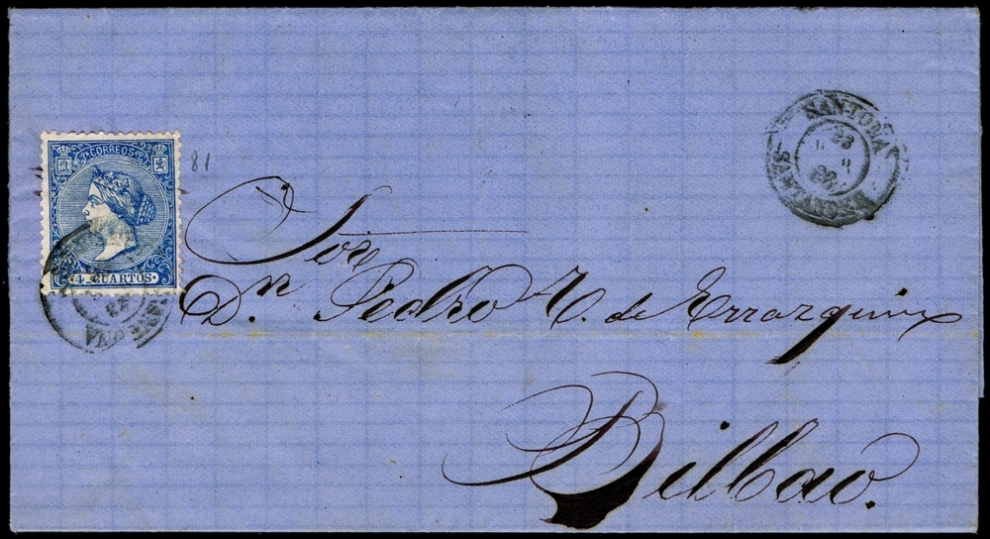 CORREOS
4 CUARTOS
81
SANTOÑA
SANTANDER
Sor
Dn Pedro V. de Errazquin
Bilbao.